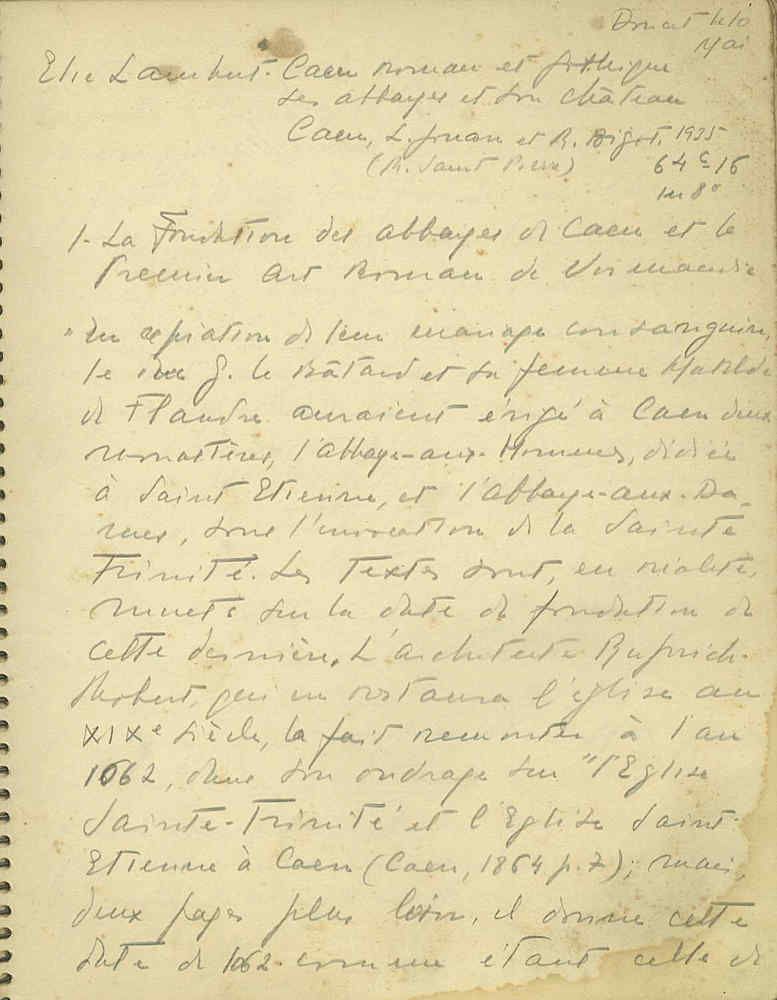 Mai
Elie Lambert. Caen roman et gothique
Ses abbayes et son château
Caen, L. Jouan et R. Bigot, 1935
(R. Saint Pierre) 64 16
in 8°
1- La Fondation des abbayes de Caen et le
Premier Art Roman de Normandie
"En expiation de leur mariage consanguin,
le duc G. le Bâtard et sa femme Matilde
de Flandre auraient érigé à Caen deux
monastères, l'abbaye-aux-Hommes, dédiée
à Saint Etienne, et l'abbaye-aux-Da-
mes, sous l'invocation de la Sainte
Trinité. Les Textes sont, en réalité,
muets sur la date de fondation de
cette dernière. L'architecte Ruprich-
Robert, qui en restaura l'église au
XIXe siècle, la fait remonter à l'an
1062, dans son ouvrage sur "l'Eglise
Sainte-Trinité et l'Eglise Saint-
Etienne à Caen (Caen, 1864 p. 7); mais,
deux pages plus loin, il donne cette
date de 1062 comme étant celle de